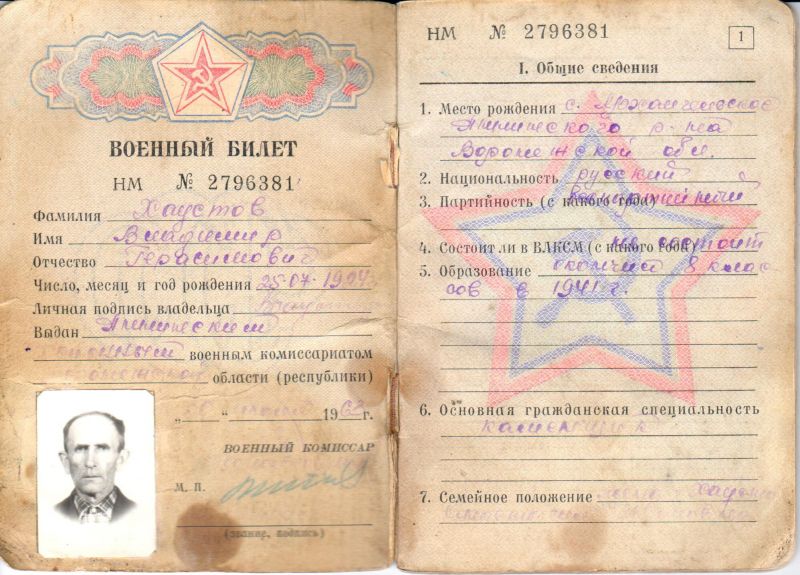 ВОЕННЫЙ БИЛЕТ
НМ № 2796381
Фамилия Хаустов
Имя Владимир
Отчество Герасимович
Число, месяц и год рождения 25-07-1927
Личная подпись владельца
Выдан Аннинским
районным военным комиссариатом
Воронежской области (республики)
„ “ 196 г.
ВОЕННЫЙ КОМИССАР
М. П.
(звание, подпись)
НМ № 2796381
1
I. Общие сведения
1. Место рождения с. Архангельское
Аннинского р-на
Воронежской обл.
2. Национальность русский
3. Партийность (с какого года) беспартийный
4. Состоит ли в ВЛКСМ (с какого года) не состоит
5. Образование окончил 8 клас
сов в 1941 г.
6. Основная гражданская специальность
каменщик
7. Семейное положение